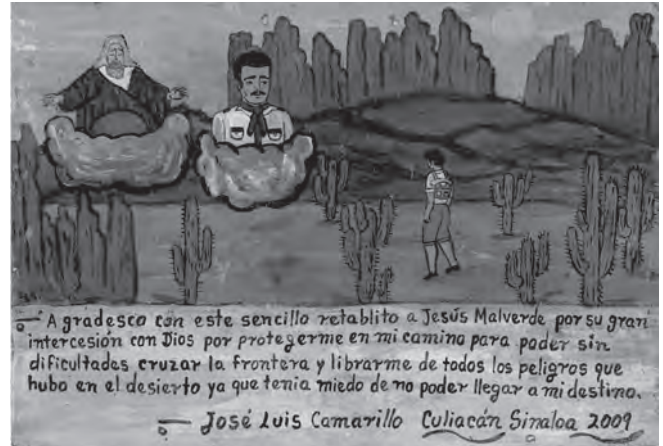 Agradesco con este sencillo retablito a Jesús Malverde por su gran
intercesión con Dios por protegerme en mi camino para poder sin
dificultades cruzar la frontera y librarme de todos los peligros que
hubo en el desierto ya que tenia miedo de no poder llegar a mi destino.
José Luis Camarillo Culiacán Sinaloa 2009